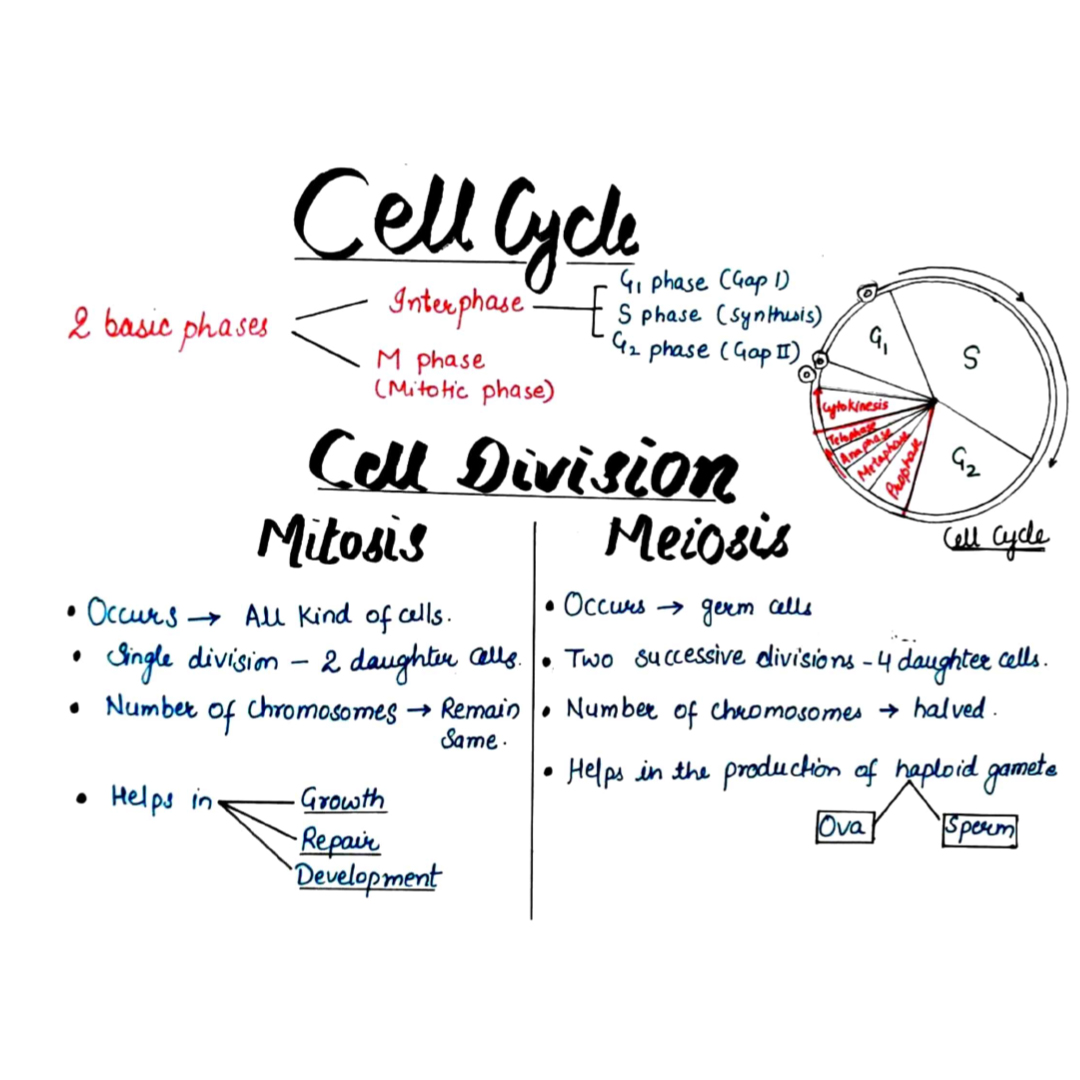 Cell Cycle
2 basic phases
Interphase
G1 phase (Gap I)
S phase (synthesis)
G2 phase (Gap II)
M phase
(Mitotic phase)
G1
S
G2
Cytokinesis
Telophase
Anaphase
Metaphase
Prophase
Cell Cycle
Cell Division
Mitosis
• Occurs → All Kind of cells.
• Single division – 2 daughter cells.
• Number of chromosomes → Remain
Same.
• Helps in
Growth
Repair
Development
Meiosis
• Occurs → germ cells
• Two successive divisions – 4 daughter cells.
• Number of chromosomes → halved.
• Helps in the production of haploid gamete
Ova
Sperm